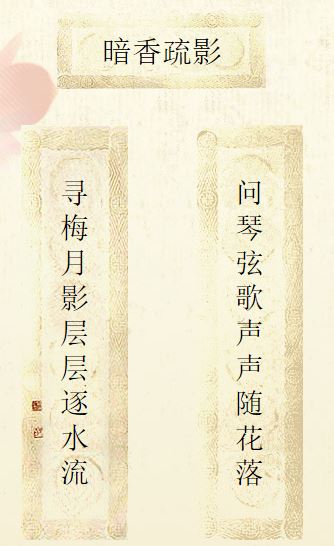 暗香疏影
问琴弦歌声声随花落
寻梅月影层层逐水流